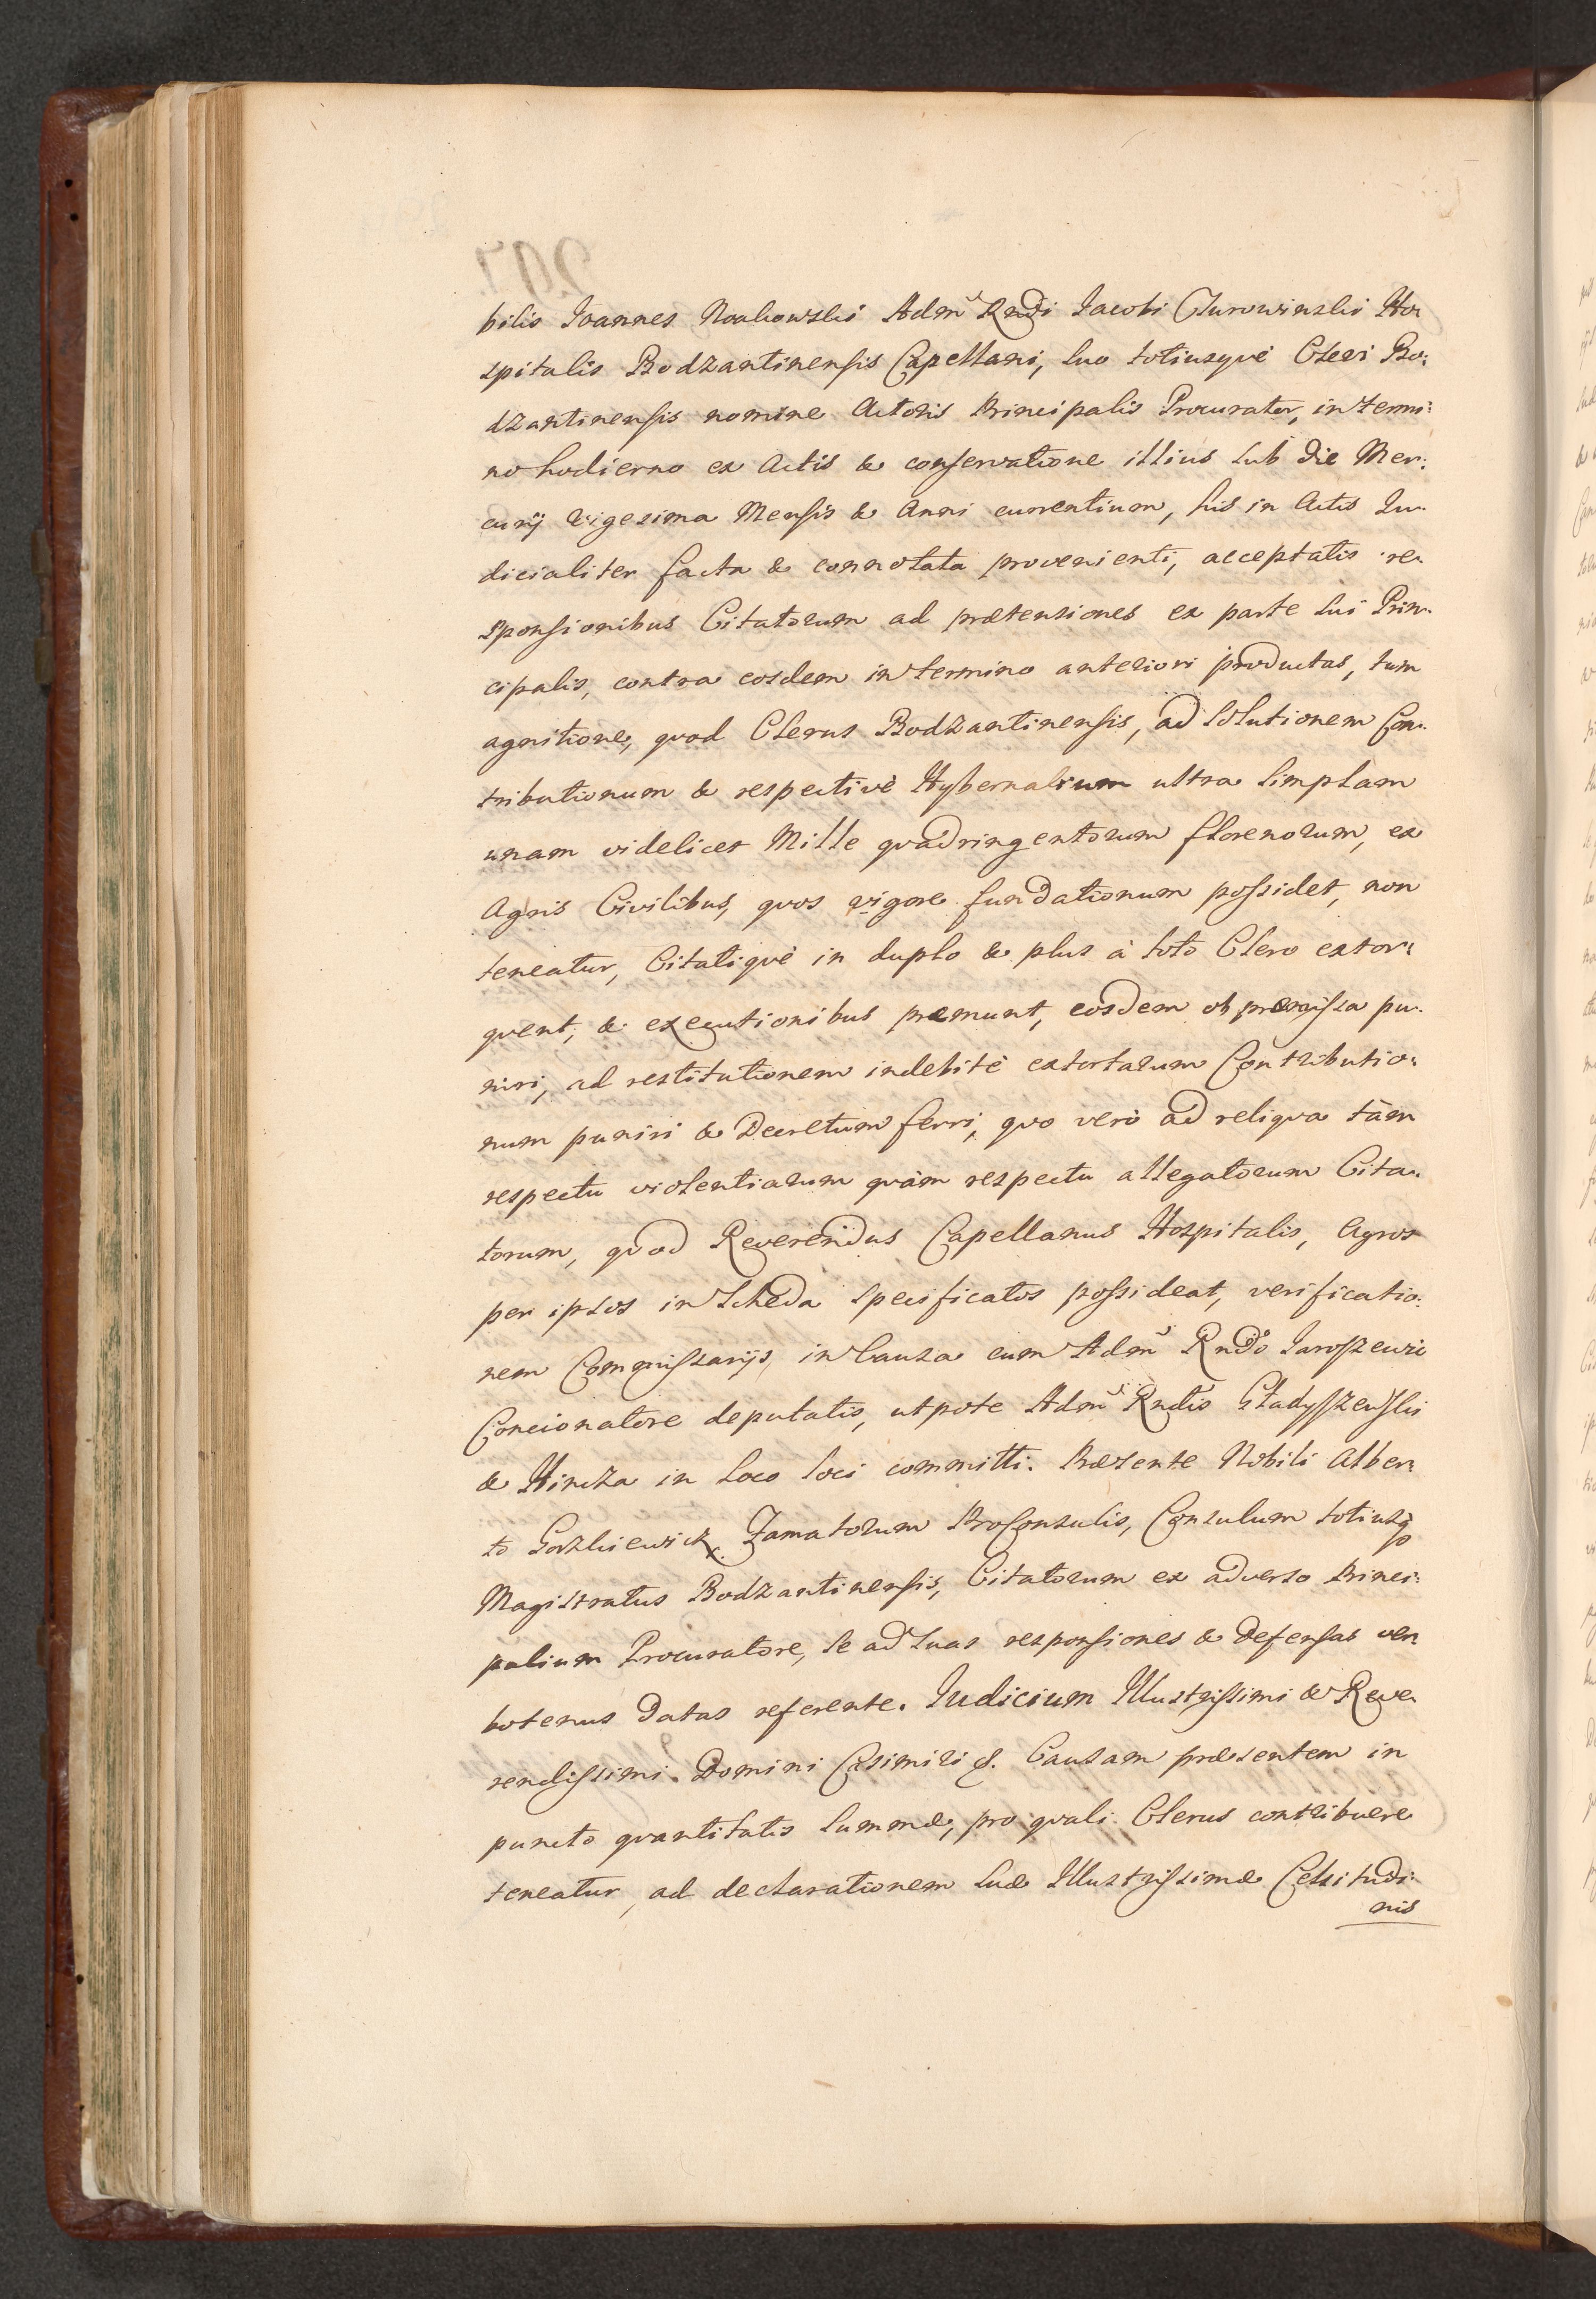 bilis Joannes Noakowski Adm Rndi Jacobi Czurowinski Ho
spitalis Bodzantinensis Capellani, suo totiusqvè Cleri Bo:
dzantinensis nomine Actoris Principalis Procurator, in termi:
no hodierno ex Actis & conservatione illius sub die Mer:
curij vigesima Mensis & Anni currentium, his in Actis Ju
dicialiter facta & connotata provenienti, acceptatis re
sponsionibus Citatorum ad prætensiones ex parte sui Prin
cipalis, contra eosdem in termino anteriori productas, tum
agnitione, qvod Clerus Bodzantinensis, ad solutionem Con
tributionum & respectivè Hybernalium ultra simplam
unam videlicet Mille qvadringentorum florenorum, ex
Agris Civilibus, qvos vigore fundationum possidet, non
teneatur, Citatiqvè in duplo & plus à toto Clero extor:
qvent, & executionibus præmunt, eosdem ob præmissa pu
niri, ad restitutionem indebitè extortarum Contributio:
num puniri & Decretum ferri, qvo verò ad reliqva tàm
respectu violentiarum qvàm respectu allegatorum Cita
torum, qvod Reverendus Capellanus Hospitalis, Agros
per ipsos in Scheda specificatos possideat, verificatio:
nem Commissarijs, in Causa cum Adm Rndo Jaroszewic
Concionatore deputatis, utpote Adm Rndis Gładyszewski
& Hincza in Loco loci committi. Præsente Nobili Alber
to Gorzkiewicz Famatorum ProConsulis, Consulum totiusq
Magistratus Bodzantinensis, Citatorum ex adverso Princi:
palium Procuratore, se ad suas responsiones & defensas ver
botenus datas referente. Judicium Illustrissimi & Reve
rendissimi Domini Casimiri &. Causam præsentem in
puncto qvantitatis summæ, pro qvali Clerus contribuere
teneatur, ad declarationem suæ Illustrissimæ Celsitudi:
nis